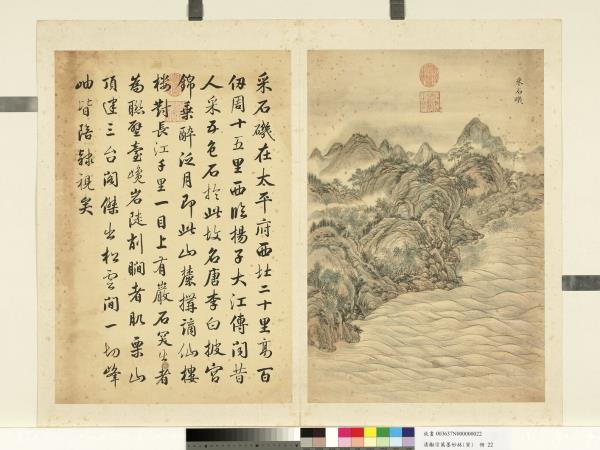 采石磯在太平府西北二十里高百
仭周十五里西臨揚子大江傳聞昔
人采五色石於此故名唐李白披宮
錦乘醉泛月即此山麓搆謫仙樓
樓對長江千里一目上有巖石突出者
為聯壁臺峻岩陡削瞷者肌栗山
頂建三台閣傑出松雲間一切峰
岫皆陪隸視矣
采石磯
故畫 003637N000000022
清顧宗萬墨妙珠林(寅) 冊 22